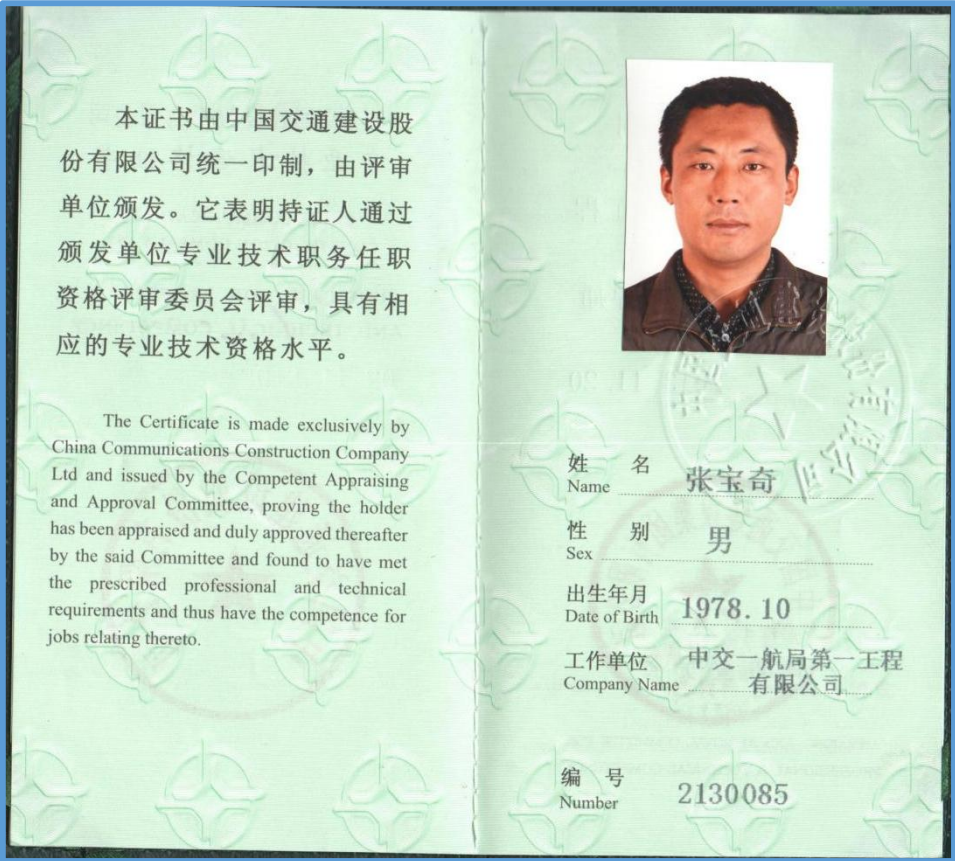 本证书由中国交通建设股
份有限公司统一印制，由评审
单位颁发。它表明持证人通过
颁发单位专业技术职务任职
资格评审委员会评审，具有相
应的专业技术资格水平。
The Certificate is made exclusively by
China Communications Construction Company
Ltd and issued by the Competent Appraising
and Approval Committee, proving the holder
has been appraised and duly approved thereafter
by the said Committee and found to have met
the prescribed professional and technical
requirements and thus have the competence for
jobs relating thereto.
姓 名 张宝奇
Name
性 别 男
Sex
出生年月 1978.10
Date of Birth
工作单位 中交一航局第一工程
Company Name 有限公司
编 号 2130085
Number